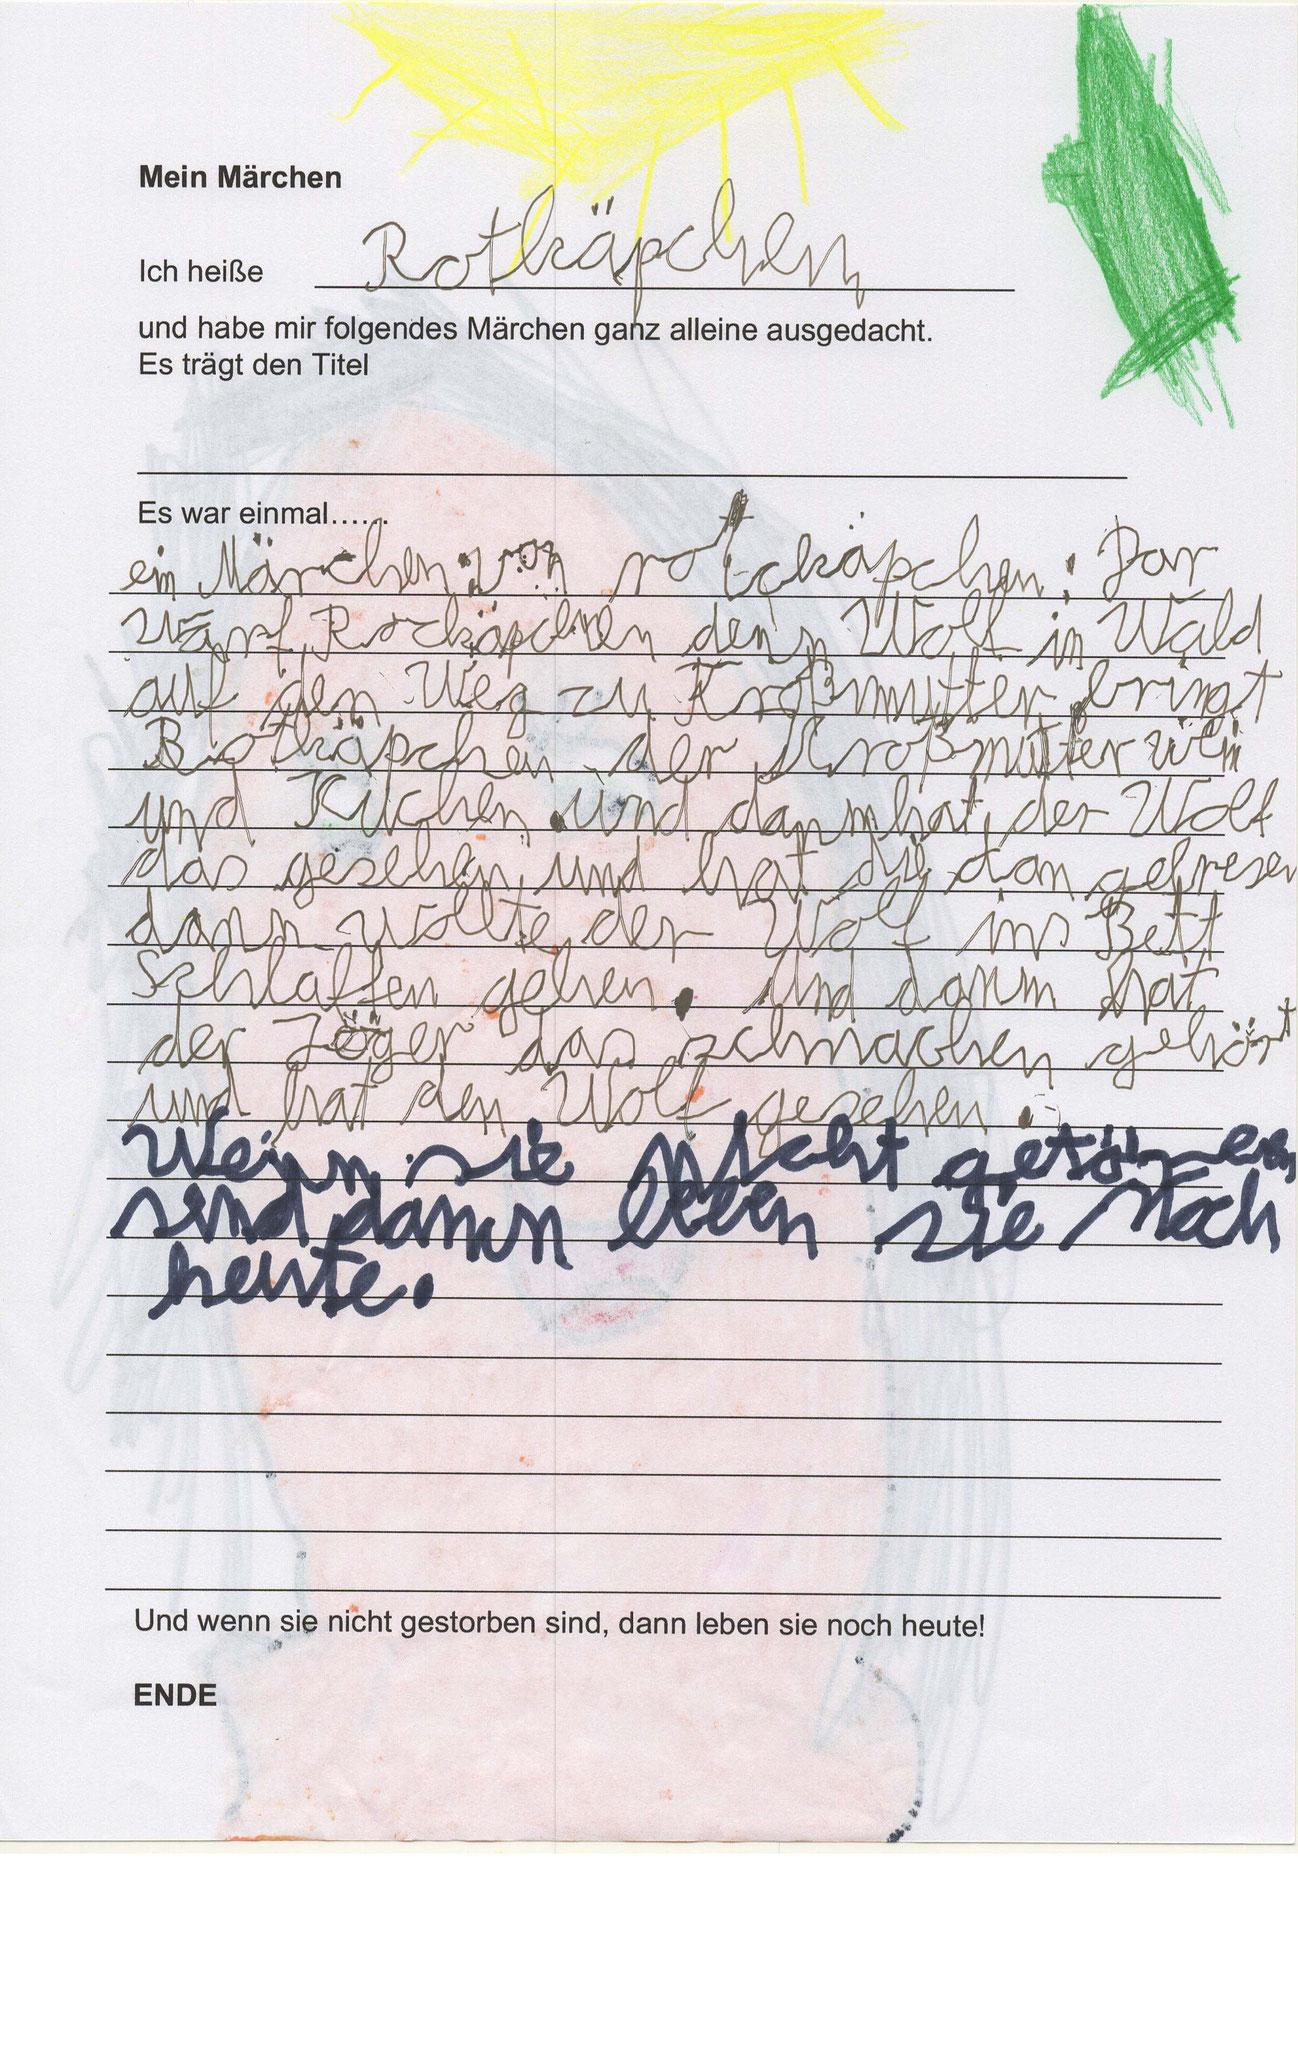 Mein Märchen
Ich heiße Rotkäpchen
und habe mir folgendes Märchen ganz alleine ausgedacht.
Es trägt den Titel
Es war einmal......
ein Märchen von rotckäpchen. Dar
Rockäpchen denn Wolf in Wald
auf den Weg zu Kroßmutter bringt
Rotkäpchen der Kroßmutter wein
und Kuchen. und dann hat der Wolf
das gesehen und hat die dan gefresen
dann wollte der Wolf ins Bett
Schlaffen gehen. und dann hat
der Jöger das schnachen gehört
und hat den Wolf gesehen.
Wenn sie nicht
sind dann leben sie Noch
heute.
Und wenn sie nicht gestorben sind, dann leben sie noch heute!
ENDE